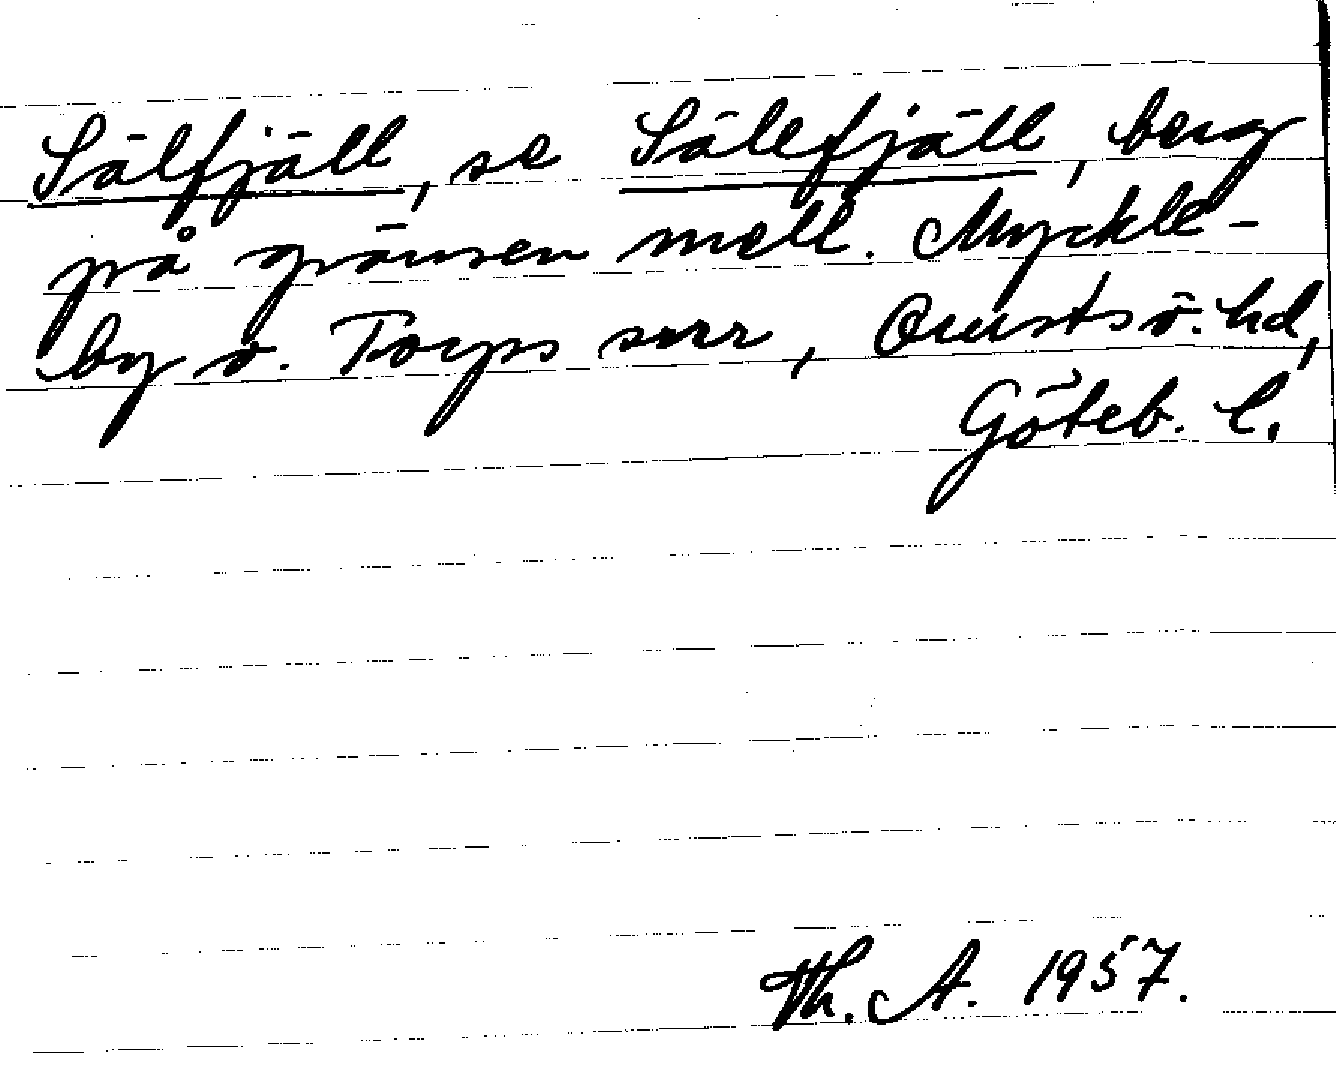 Sälfjäll, se Sälefjäll, berg
på gränsen mell. Myckle-
by o. Torps snr, Orusts ö. hd,
Göteb. l.
Th. A. 1957.